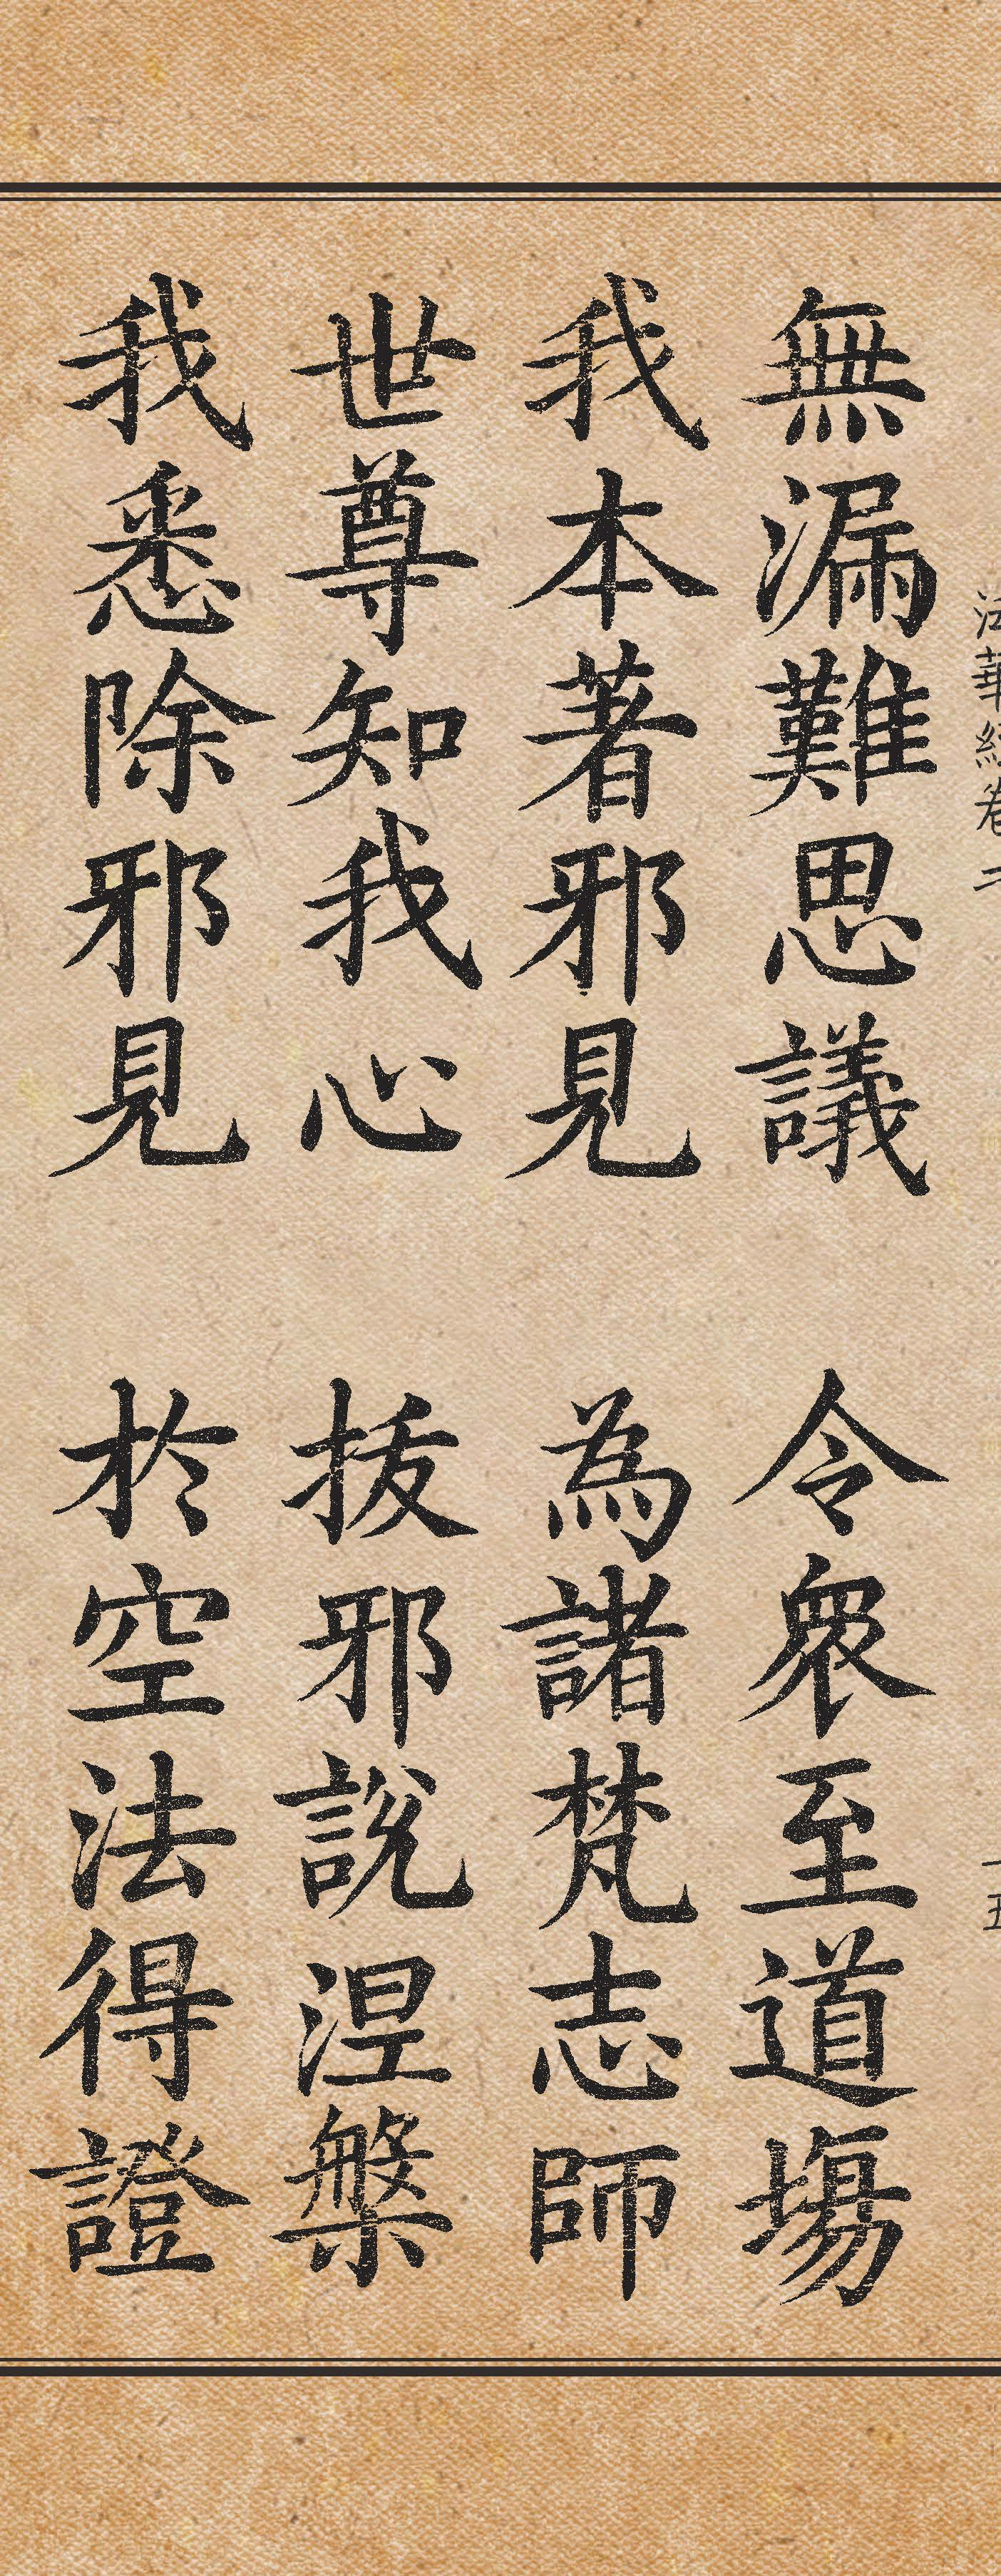 無漏難思議　令衆至道塲
我本著邪見　為諸梵志師
世尊知我心　拔邪說涅槃
我悉除邪見　於空法得證